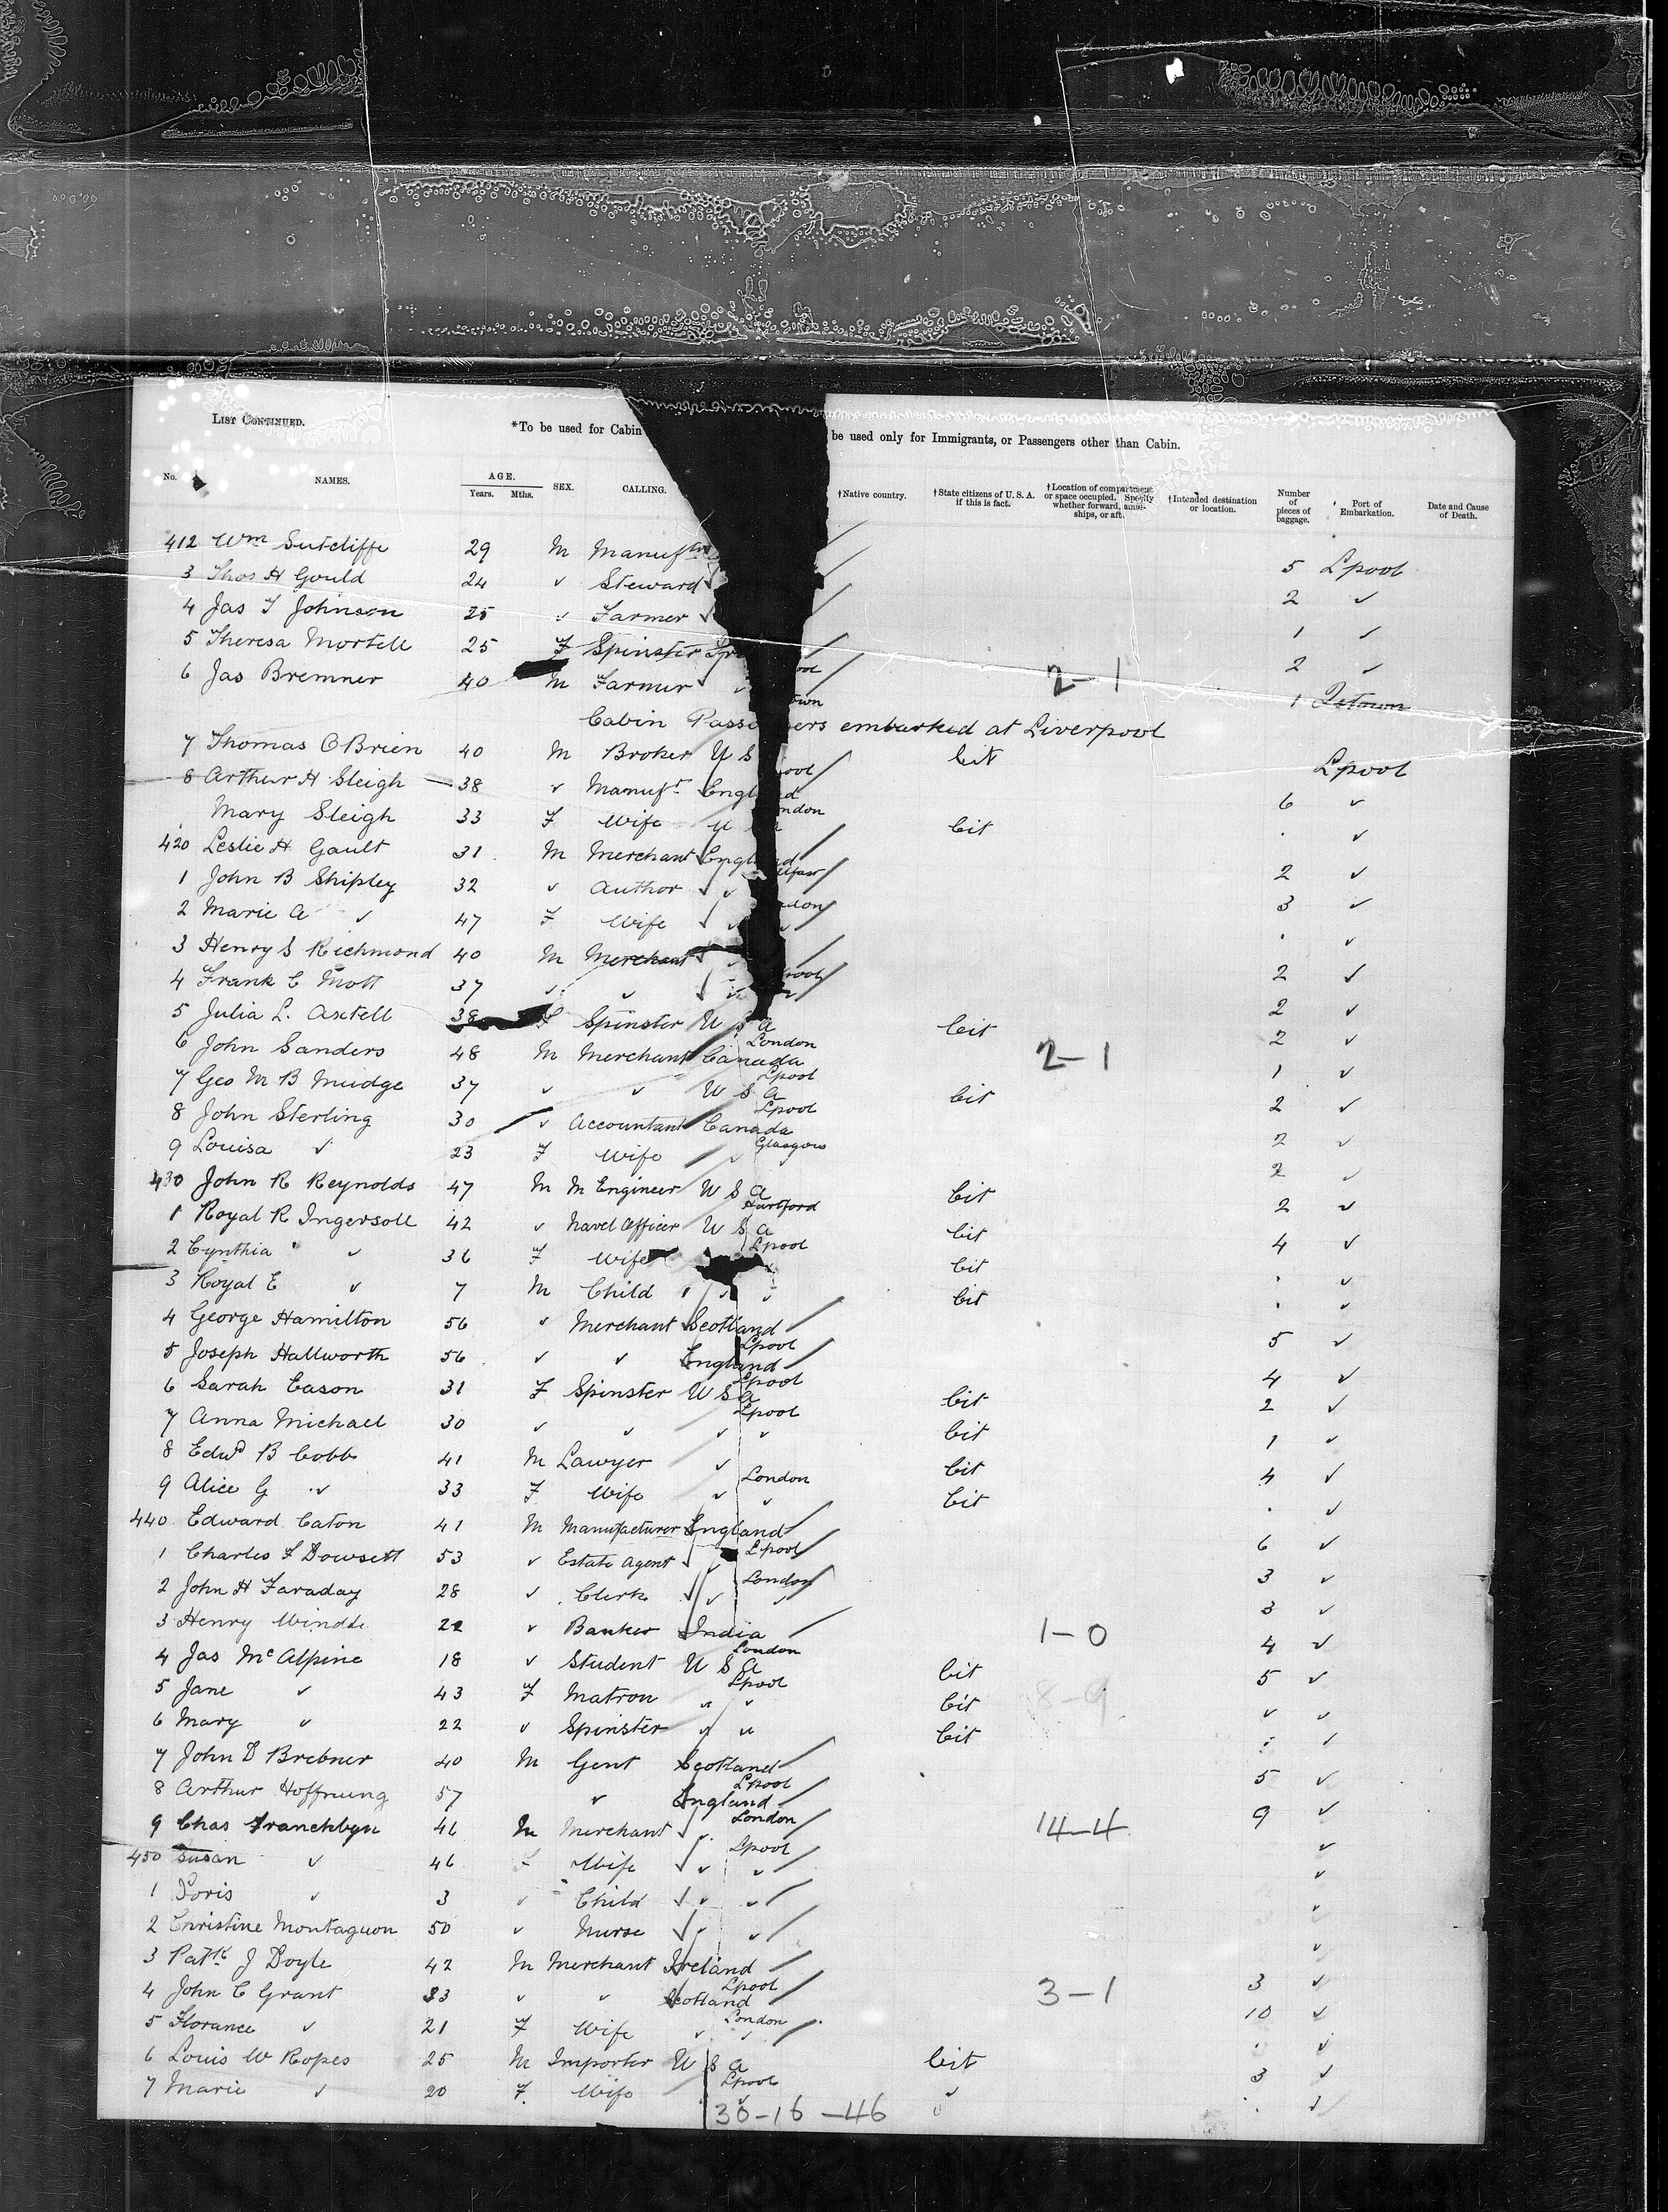 LIST CONTINUED.
*To be used for Cabin be used only for Immigrants, or Passengers other than Cabin.
No. NAMES. AGE. Years. Mths. SEX. CALLING. †Native country. †State citizens of U. S. A. if this is fact. †Location of compartment or space occupied. Specify whether forward, amidships, or aft. †Intended destination or location. Number of pieces of baggage. Port of Embarkation. Date and Cause of Death.
412 Wm Sutcliffe 29 M Manuftr 5 Lpool
3 Thos H Gould 24 ✓ Steward 2 ✓
4 Jas T Johnson 25 ✓ Farmer 1 ✓
5 Theresa Mortell 25 F Spinster 2 ✓
6 Jas Bremner 40 M Farmer 2-1 1 Qstown
Cabin Passe ers embarked at Liverpool
7 Thomas O'Brien 40 M Broker U S Cit Lpool
8 Arthur H Sleigh 38 ✓ Manufr Engl d 6 ✓
Mary Sleigh 33 F Wife U ndon Cit . ✓
420 Leslie H Gault 31 M Merchant Engl d 2 ✓
1 John B Shipley 32 ✓ Author ✓ 3 ✓
2 Marie A ✓ 47 F Wife ✓ . ✓
3 Henry S Richmond 40 M Merchant 2 ✓
4 Frank C Mott 37 ✓ ✓ ✓ 2 ✓
5 Julia L. Axtell 38 F Spinster U S A London Cit 2 ✓
6 John Sanders 48 M Merchant Canada Lpool 2-1 1 ✓
7 Geo M B Mudge 37 ✓ ✓ U S A Lpool Cit 2 ✓
8 John Sterling 30 ✓ Accountant Canada Glasgow 2 ✓
9 Louisa ✓ 23 F Wife ✓ 2 ✓
430 John R Reynolds 47 M M Engineer U S A Hartford Cit 2 ✓
1 Royal R Ingersoll 42 ✓ Navel Officer U S A Lpool Cit 4 ✓
2 Cynthia ✓ 36 F Wife Cit . ✓
3 Royal E ✓ 7 M Child ✓ ✓ Cit . ✓
4 George Hamilton 56 ✓ Merchant Scotland Lpool 5 ✓
5 Joseph Hallworth 56 ✓ ✓ England Lpool 4 ✓
6 Sarah Eason 31 F Spinster U S A Lpool Cit 2 ✓
7 Anna Michael 30 ✓ ✓ ✓ ✓ Cit 1 ✓
8 Edwd B Cobb 41 M Lawyer ✓ London Cit 4 ✓
9 Alice G ✓ 33 F Wife ✓ ✓ Cit . ✓
440 Edward Caton 41 M Manufacturer England Lpool 6 ✓
1 Charles F Dowsett 53 ✓ Estate Agent ✓ London 3 ✓
2 John H Faraday 28 ✓ Clerk ✓ ✓ 3 ✓
3 Henry 22 ✓ Banker India London 1-0 4 ✓
4 Jas McAlpine 18 ✓ Student U S A Lpool Cit 5 ✓
5 Jane ✓ 43 F Matron " ✓ Cit 8-9 ✓ ✓
6 Mary ✓ 22 ✓ Spinster " " Cit ✓
7 John D Brebner 40 M Gent Scotland Lpool 5 ✓
8 Arthur Hoffnung 57 ✓ England London 9 ✓
9 Chas 46 M Merchant ✓ Lpool 14-4 ✓
450 Susan ✓ 46 F Wife ✓ ✓ ✓
1 Doris ✓ 3 ✓ Child ✓ ✓ ✓
2 Christine Montaguon 50 ✓ Nurse ✓ ✓ ✓
3 Patk J Doyle 42 M Merchant Ireland Lpool 3 ✓
4 John C Grant 33 ✓ ✓ Scotland London 3-1 10 ✓
5 Florance ✓ 21 F Wife ✓ ✓ . ✓
6 Louis W Ropes 25 M Importer U S A Lpool Cit 3 ✓
7 Marie ✓ 20 F. Wife ✓ ✓ . ✓
30-16-46